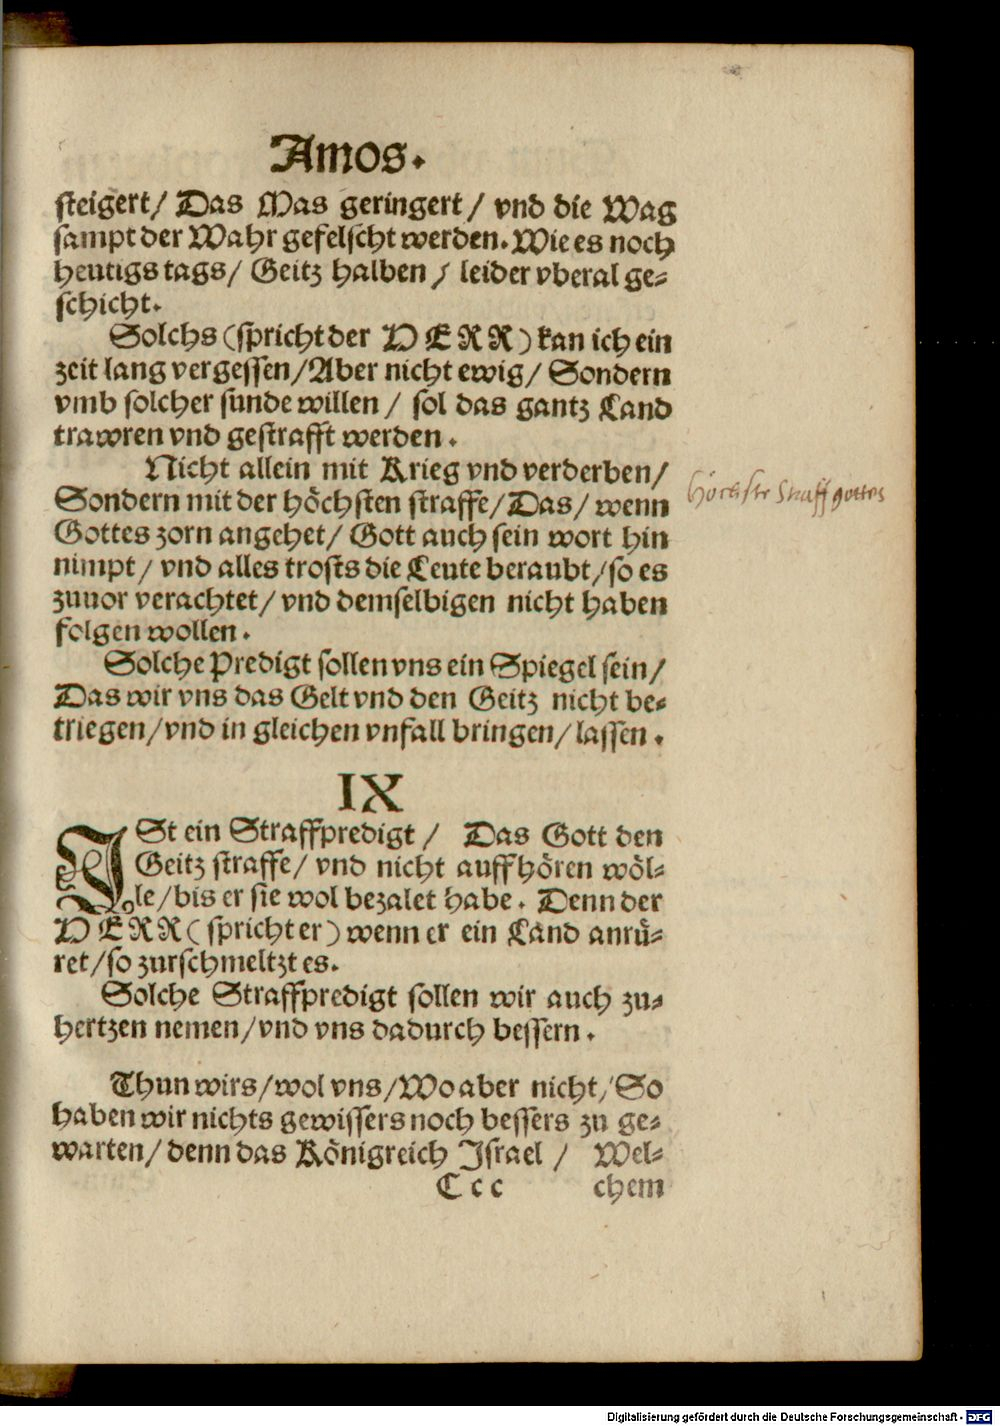 Amos.
steigert/ Das Mas geringert/ vnd die Wag
sampt der Wahr gefelscht werden. Wie es noch
heutigs tags/ Geitz halben/ leider vberal ge-
schicht.
Solchs (spricht der HERR) kan ich ein
zeit lang vergessen/Aber nicht ewig/ Sondern
vmb solcher sunde willen/ sol das gantz Land
trawren vnd gestrafft werden.
Nicht allein mit Krieg vnd verderben/
Sondern mit der höchsten straffe/Das/ wenn
höchste Straff gottes
Gottes zorn angehet/ Gott auch sein wort hin
nimpt/ vnd alles trosts die Leute beraubt/so es
zuuor verachtet/ vnd demselbigen nicht haben
folgen wollen.
Solche Predigt sollen vns ein Spiegel sein/
Das wir vns das Gelt vnd den Geitz nicht be-
triegen/vnd in gleichen vnfall bringen/lassen.
IX
ISt ein Straffpredigt/ Das Gott den
Geitz straffe/ vnd nicht auffhören wöl-
le/bis er sie wol bezalet habe. Denn der
HERR (spricht er) wenn er ein Land anrü-
ret/so zurschmeltzt es.
Solche Straffpredigt sollen wir auch zu-
hertzen nemen/vnd vns dadurch bessern.
Thun wirs/wol vns/Wo aber nicht/So
haben wir nichts gewissers noch bessers zu ge-
warten/denn das Königreich Israel/ Wel-
Ccc chem
Digitalisierung gefördert durch die Deutsche Forschungsgemeinschaft - DFG